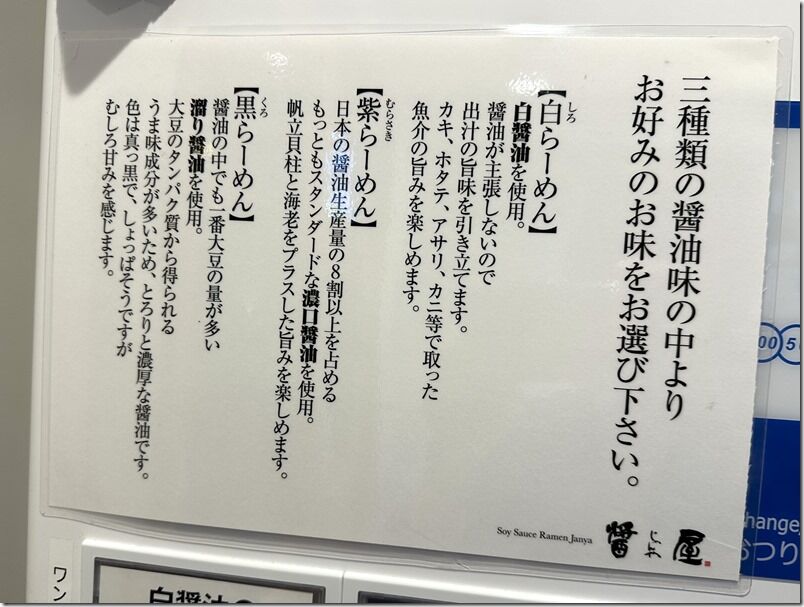 三種類の醤油味の中より
お好みのお味をお選び下さい。
【白らーめん】
しろ
白醤油を使用。
醤油が主張しないので
出汁の旨味を引き立てます。
カキ、ホタテ、アサリ、カニ等で取った
魚介の旨みを楽しめます。
【紫らーめん】
むらさき
日本の醤油生産量の8割以上を占める
もっともスタンダードな濃口醤油を使用。
帆立貝柱と海老をプラスした旨みを楽しめます。
【黒らーめん】
くろ
醤油の中でも一番大豆の量が多い
溜り醤油を使用。
大豆のタンパク質から得られる
うま味成分が多いため、とろりと濃厚な醤油です。
色は真っ黒で、しょっぱそうですが
むしろ甘みを感じます。
Soy Sauce Ramen Janya
醤じゃ屋
hange
おつり
ワン
白醤油の